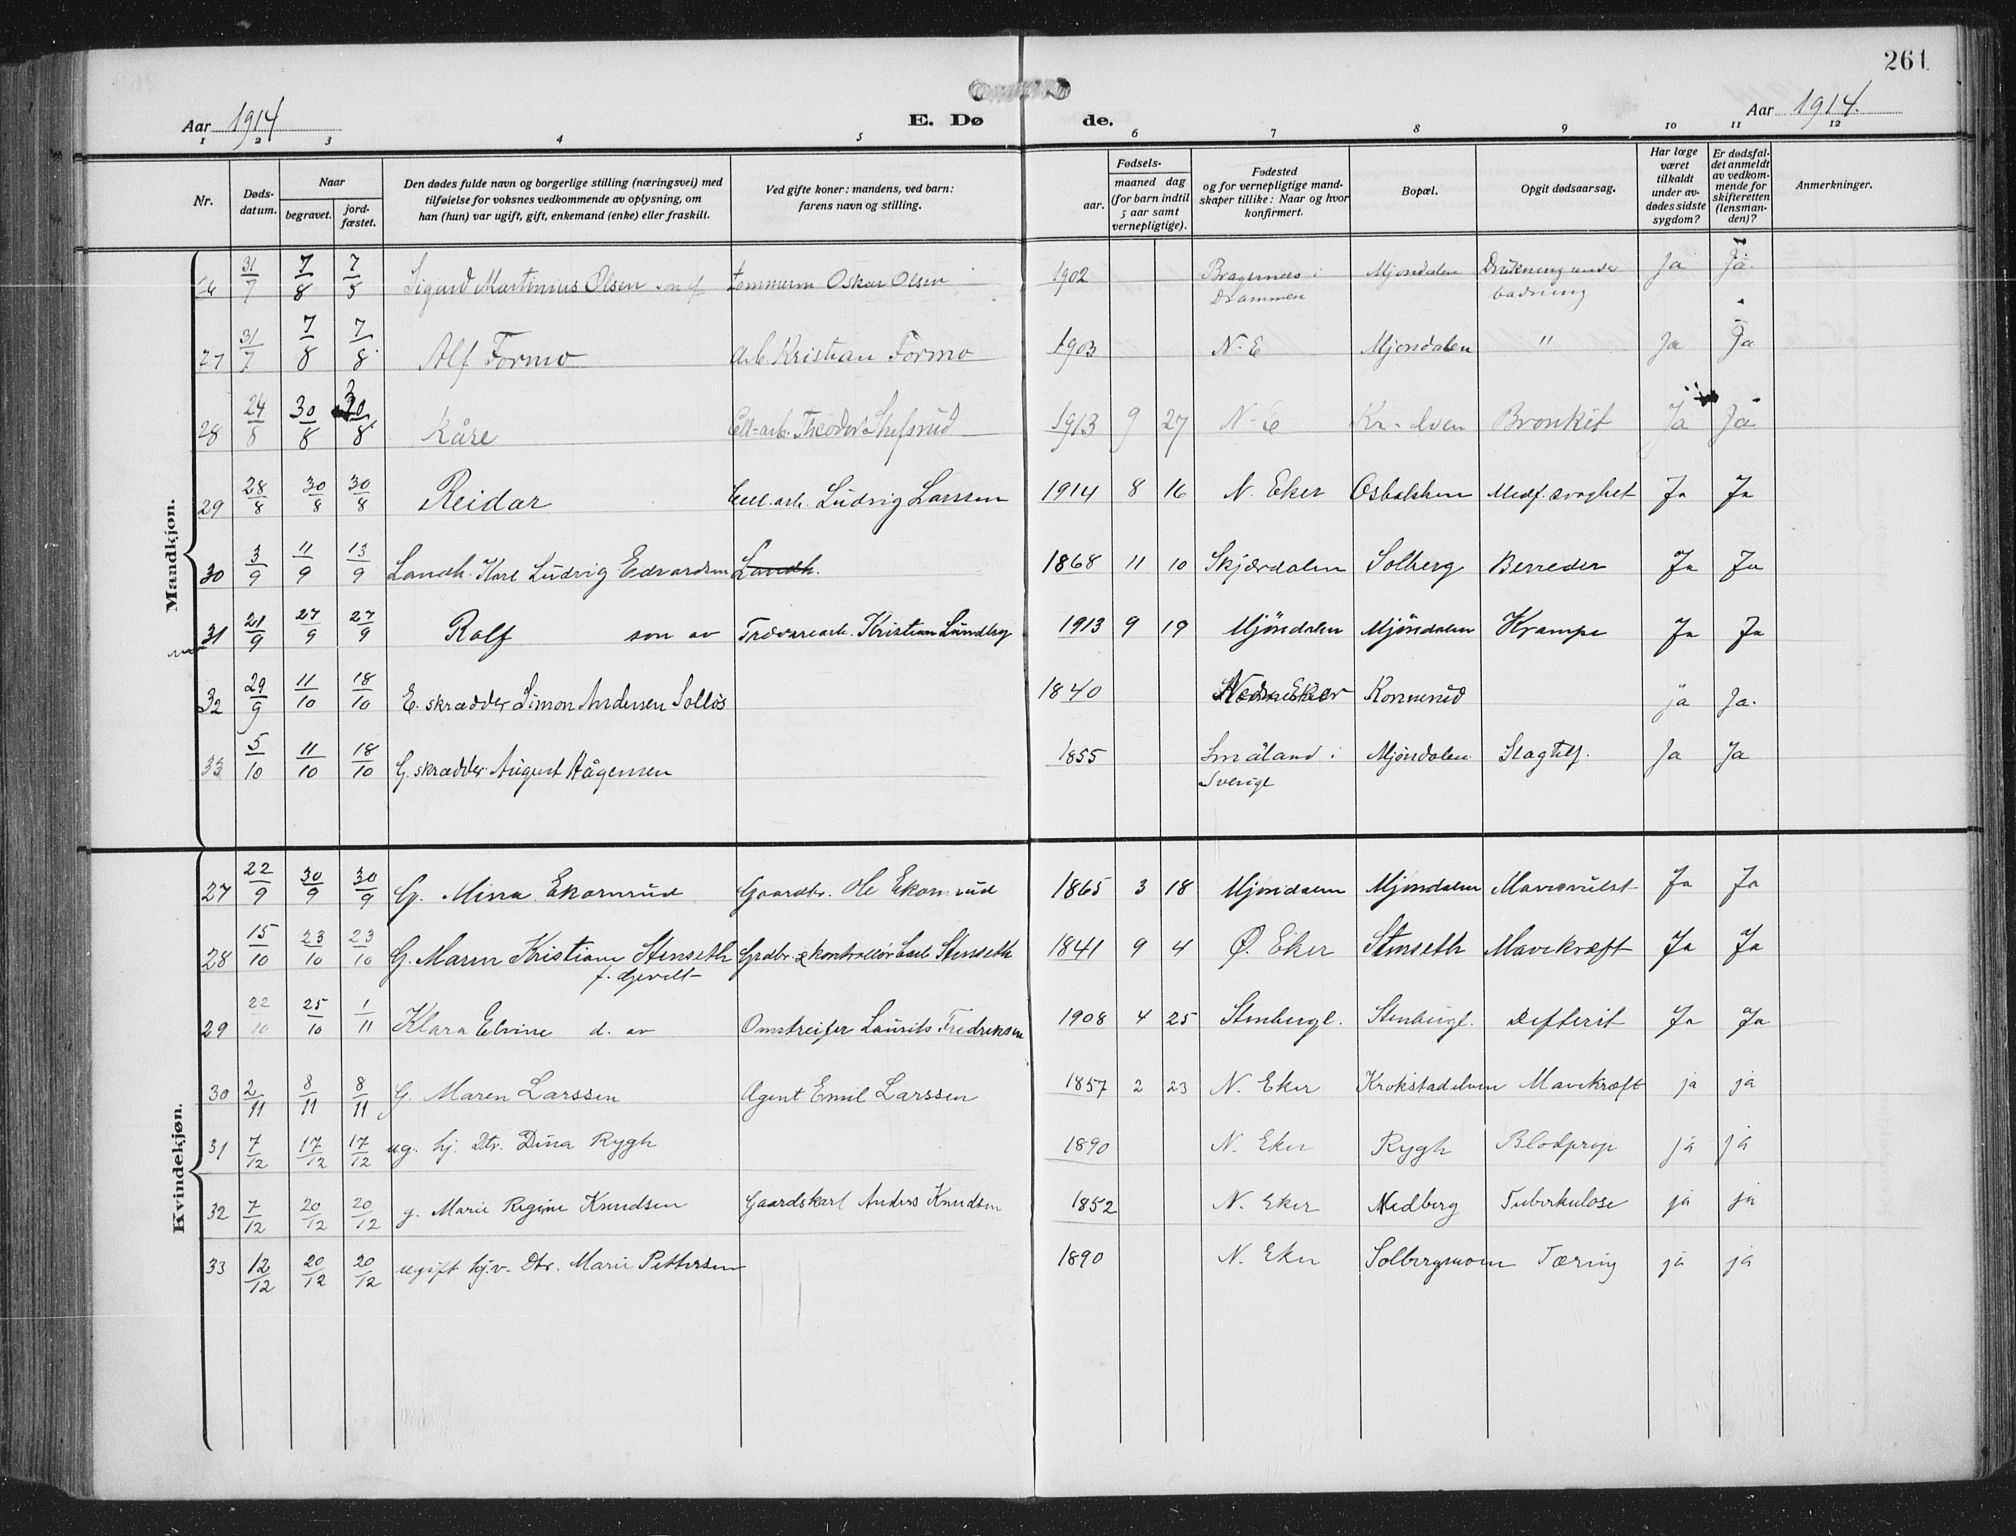 261
Aar 1914 E. Dø de. Aar 1914.
1 2 3 4 5 6 7 8 9 10 11 12
Nr. Døds-datum. Naar begravet. jord-fæstet. Den dødes fulde navn og borgerlige stilling (næringsvei) med tilføielse for voksnes vedkommende av oplysning, om han (hun) var ugift, gift, enkemand (enke) eller fraskilt. Ved gifte koner: mandens, ved barn: farens navn og stilling. Fødsels- aar. maaned dag (for barn indtil 5 aar samt vernepligtige). Fødested og for vernepligtige mand-skaper tillike: Naar og hvor konfirmert. Bopæl. Opgit dødsaarsag. Har læge været tilkaldt under av-dødes sidste sygdom? Er dødsfal-det anmeldt av vedkom-mende for skifteretten (lensman-den)? Anmerkninger.
Mandkjøn.
26 31/7 7/8 7/5 Sigurd Martinius Olsen son af tømmerm Oskar Olsen 1902 Bragernes i Drammen Mjøndalen Drukning under badning Ja Ja.
27 31/7 7/8 7/8. Alf Formo Arb. Kristian Formo 1903 N-E Mjøndalen " Ja Ja
28 24/8 30/8 30/8 Kåre Cell-arb. Theodor 1913 9 27 N-E Kr-elven Bronkit Ja Ja
29 28/8 30/8 30/8 Reidar Cell. arb. Ludvig Larssen 1914 8 16 N. Eker Medf. svaghet Ja Ja
30 3/9 11/9 13/9 Landh. Karl Ludvig Edvardsen Landh. 1868 11 10 Skjærdalen Solberg Ja Ja
31 21/9 27/9 27/9 Rolf son av Trævarearb. Kristian Lundbg 1913 9 19 Mjöndalen Mjöndalen Krampe Ja Ja
32 29/9 11/10 18/10 E. skrædder Simon Andersen Solløs 1840 Nedre Eker Konnerud ja Ja.
33 5/10 11/10 18/10 G. skrædder August Hågensen 1855 Småland i Sverige Mjøndalen Slagtilf. Ja Ja
Kvindekjøn.
27 22/9 30/9 30/9 G. Mina Ekornrud Gaardbr. Ole Ekornrud 1865 3 18 Mjøndalen Mjøndalen Mavesvulst Ja Ja
28 15/10 23/10 23/10 G. Maren Kristiane Stenseth f. Gevelt Grdbr. & kontrollør Carl Stenseth 1841 9 4 Ø. Eker Stenseth Mavekræft Ja Ja
29 22/10 25/10 1/11 Klara Elvine d. av Omstreifer Laurits Fredriksen 1908 4 25 Stenbergl. Stenbergl. Difterit Ja Ja
30 2/11 8/11 8/11 G. Maren Larssen Agent Emil Larssen 1857 2 23 N. Eker Krokstadelven Mavekræft ja ja
31 7/12 17/12 17/12 ug. hj. Dtr. Dina Rygh 1890 N. Eker Rygh Blodprop ja ja
32 7/12 20/12 20/12 g. Marie Regine Knudsen Gaardskarl Anders Knudsen 1852 N. Eker Medberg Tuberkulose ja ja
33 12/12 20/12 20/12 ugift hj.v. Dtr. Marie Pettersen 1890 N. Eker Solbergmoen Tæring ja ja